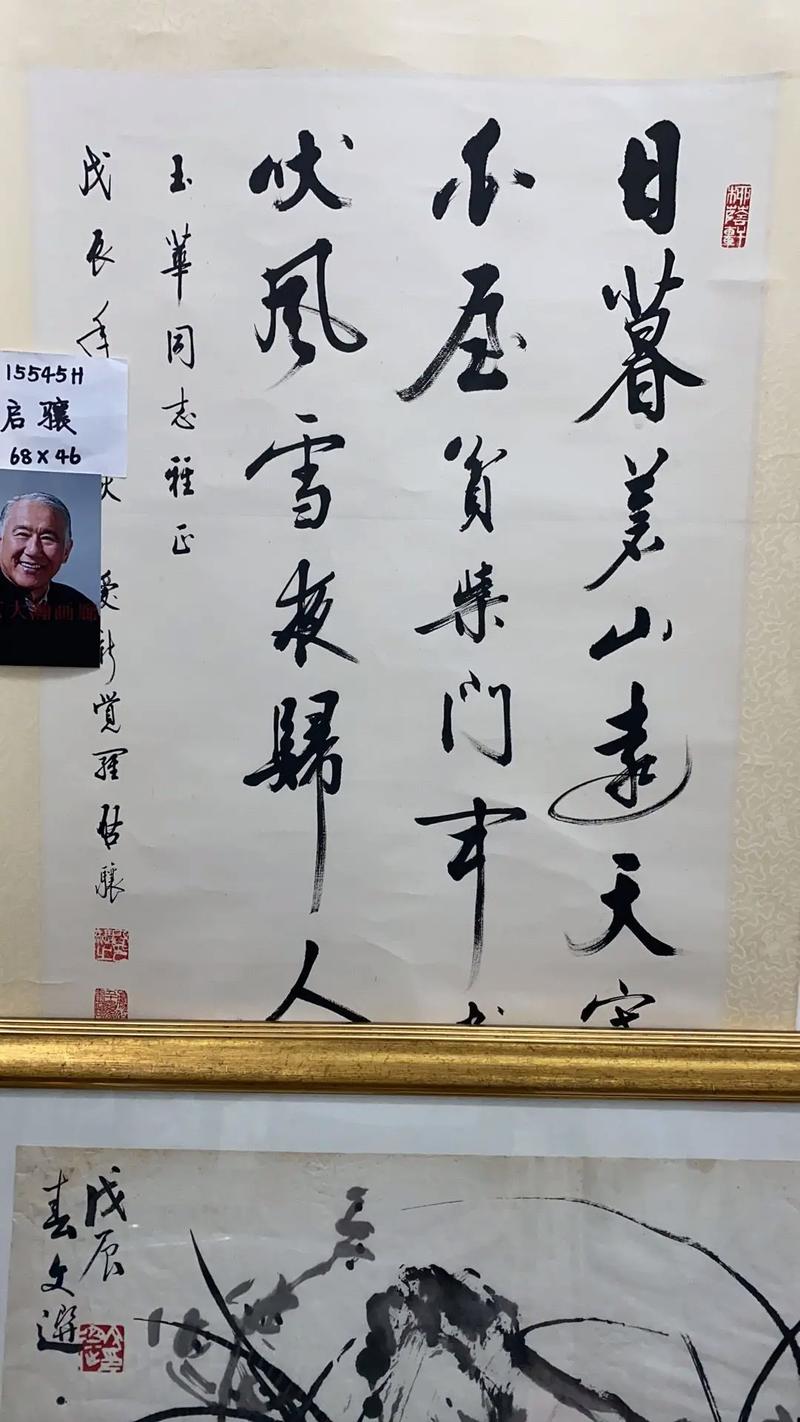 日暮苍山遠天寒
白屋貧柴門聞犬
吠風雪夜歸人
玉華同志雅正
戊辰年秋 愛新覚羅啓驤
柳蔭軒
15545H
启骧
68×46
大瀚画廊
戊辰
春文選